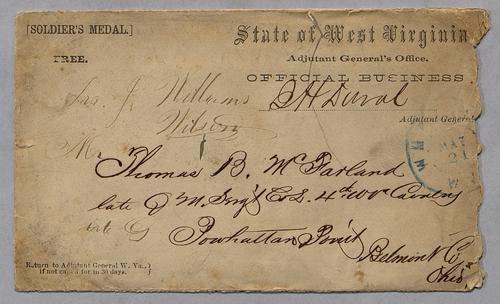 [SOLDIER'S MEDAL.]
State of West Virginia
Adjutant General's Office.
FREE.
OFFICIAL BUSINESS
Jas. J. Williams
S H Duval
Wilson
Adjutant General
Mr
Thomas B. McFarland
late Q M. Sergt Co L. 4th W Va Cavalry
late Q
Powhattan Point
Belmont Co
Ohio
Return to Adjutant General W. Va.,
if not called for in 30 days.
MAY
21
W